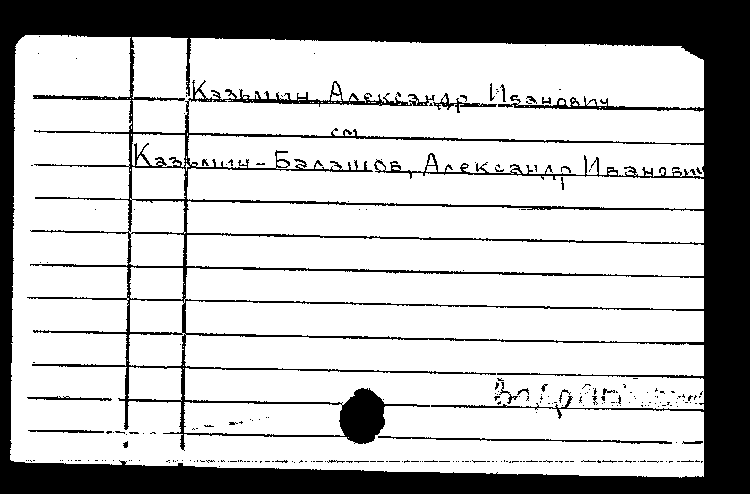 Казьмин, Александр Иванович
см
Казьмин-Балашов, Александр Иванович